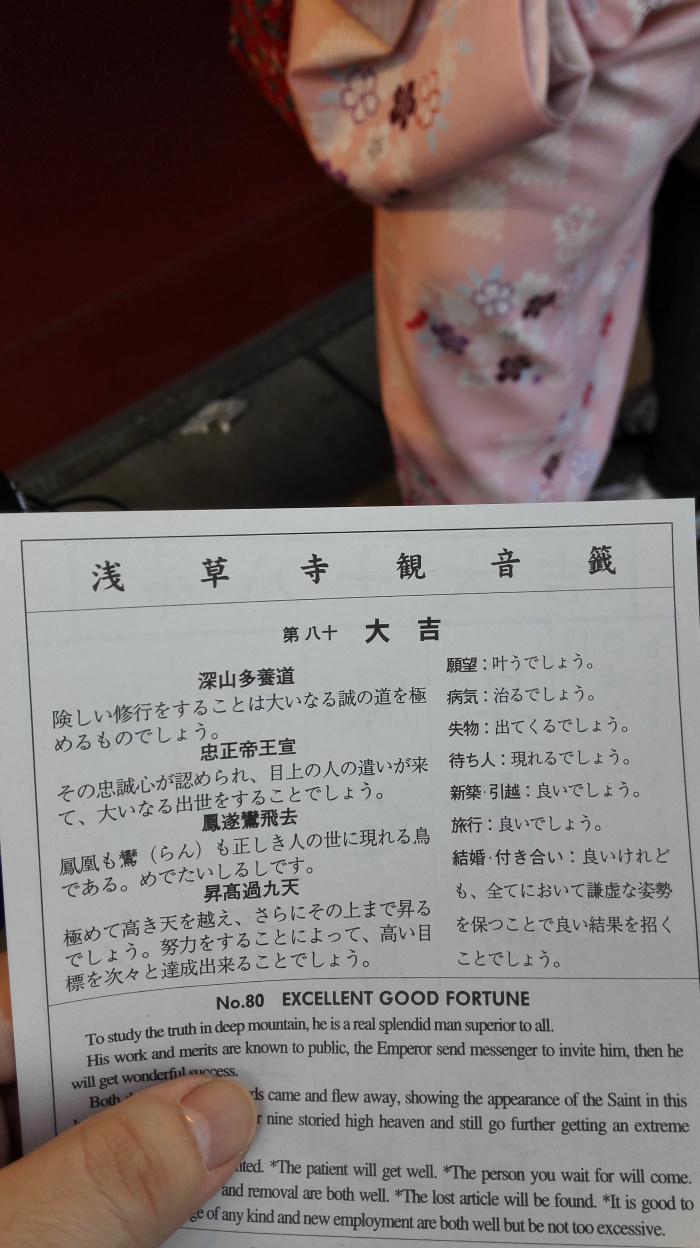 浅草寺観音籤
第八十 大吉
深山多養道
険しい修行をすることは大いなる誠の道を極
めるものでしょう。
忠正帝王宣
その忠誠心が認められ、目上の人の遣いが来
て、大いなる出世をすることでしょう。
鳳遂鸞飛去
鳳凰も鸞（らん）も正しき人の世に現れる鳥
である。めでたいしるしです。
昇高過九天
極めて高き天を越え、さらにその上まで昇る
でしょう。努力をすることによって、高い目
標を次々と達成出来ることでしょう。
願望：叶うでしょう。
病気：治るでしょう。
失物：出てくるでしょう。
待ち人：現れるでしょう。
新築·引越：良いでしょう。
旅行：良いでしょう。
結婚·付き合い：良いけれど
も、全てにおいて謙虚な姿勢
を保つことで良い結果を招く
ことでしょう。
No.80 EXCELLENT GOOD FORTUNE
To study the truth in deep mountain, he is a real splendid man superior to all.
His work and merits are known to public, the Emperor send messenger to invite him, then he
will get wonderful success.
Both came and flew away, showing the appearance of the Saint in this
nine storied high heaven and still go further getting an extreme
*The patient will get well. *The person you wait for will come.
and removal are both well. *The lost article will be found. *It is good to
of any kind and new employment are both well but be not too excessive.